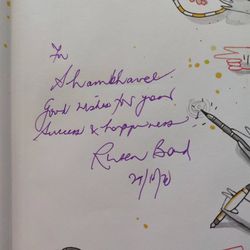 To
Shambhavee.
Good wishes for your
success & happiness
Ruskin Bond